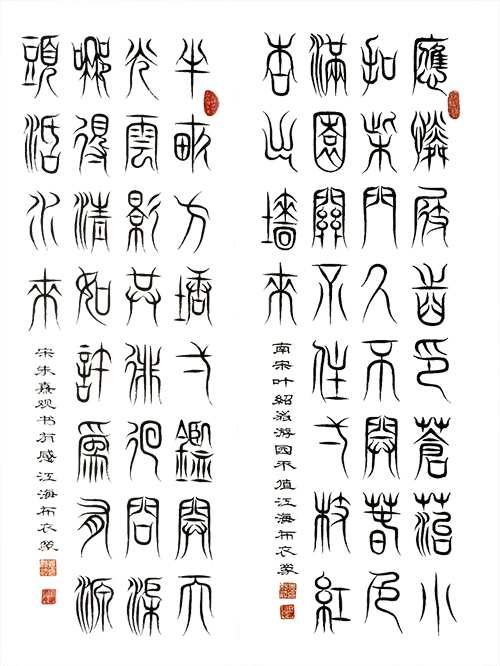 應憐屐齒印蒼苔小
扣柴門久不開春色
滿園關不住一枝紅
杏出墻來
南宋叶紹翁游园不值江海布衣篆
半畝方塘一鑑開天
光雲影共徘徊問渠
哪得清如許爲有源
頭活水來
宋朱熹观书有感江海布衣篆